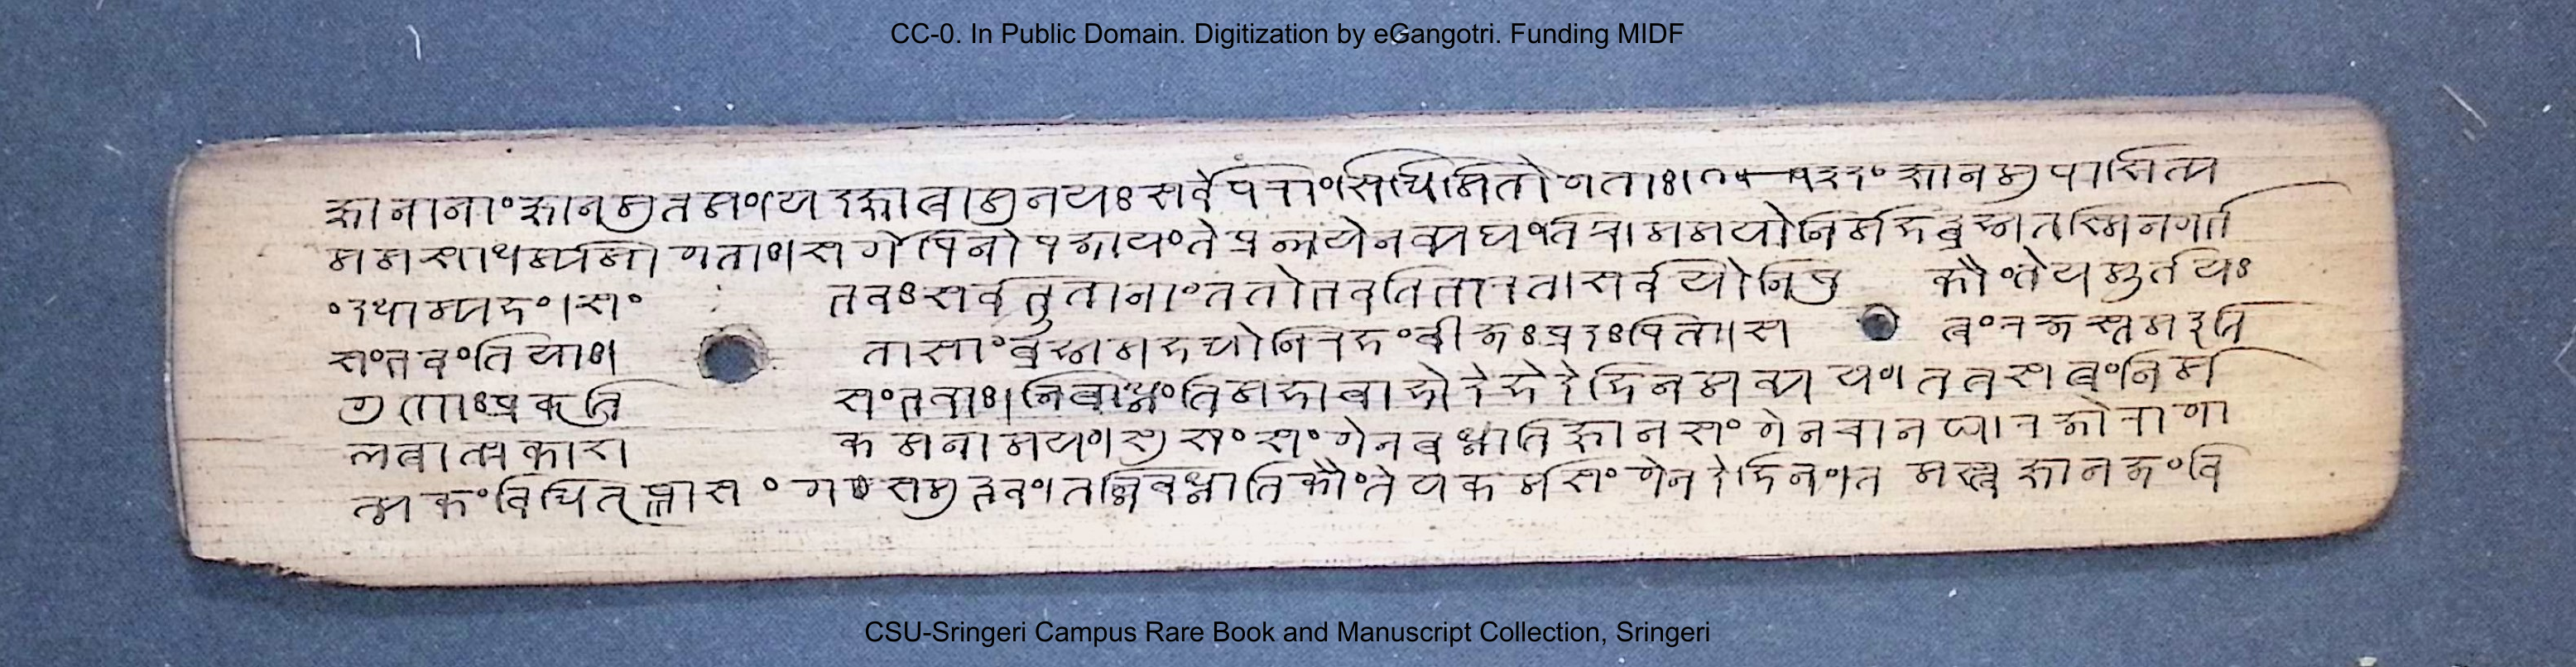 CC-0. In Public Domain. Digitization by eGangotri. Funding MIDF
ज्ञानानांज्ञानमुत्तमं।यज्ज्ञात्वामुनयःसर्वेपरांसिद्धिमितोगताः। इदंज्ञानमुपाश्रित्य
ममसाधर्म्यमागताः।सर्गेपिनोपजायंतेप्रलयेनव्यथंति ममयोनिर्महद्ब्रह्मतस्मिन्गर्भं
दधाम्यहं।सं भवःसर्वभूतानांततोभवतिभारत।सर्वयोनिषु कौंतेयमूर्तयः
संभवंतियाः। तासांब्रह्ममहद्योनिरहंबीजप्रदःपिता।स त्वंरजस्तमइति
गुणाःप्रकृति संभवाः।निबध्नंतिमहाबाहोदेहेदेहिनमव्ययं।तत्रसत्वंनिर्म
लत्वात्प्रकाश कमनामयं।सुखसंगेनबध्नातिज्ञानसंगेनचानघ।रजोरागा
त्मकंविद्धितृष्णासंगसमुद्भवं।तन्निबध्नातिकौंतेयकर्मसंगेनदेहिनं।तमस्त्वज्ञानजंवि
CSU-Sringeri Campus Rare Book and Manuscript Collection, Sringeri